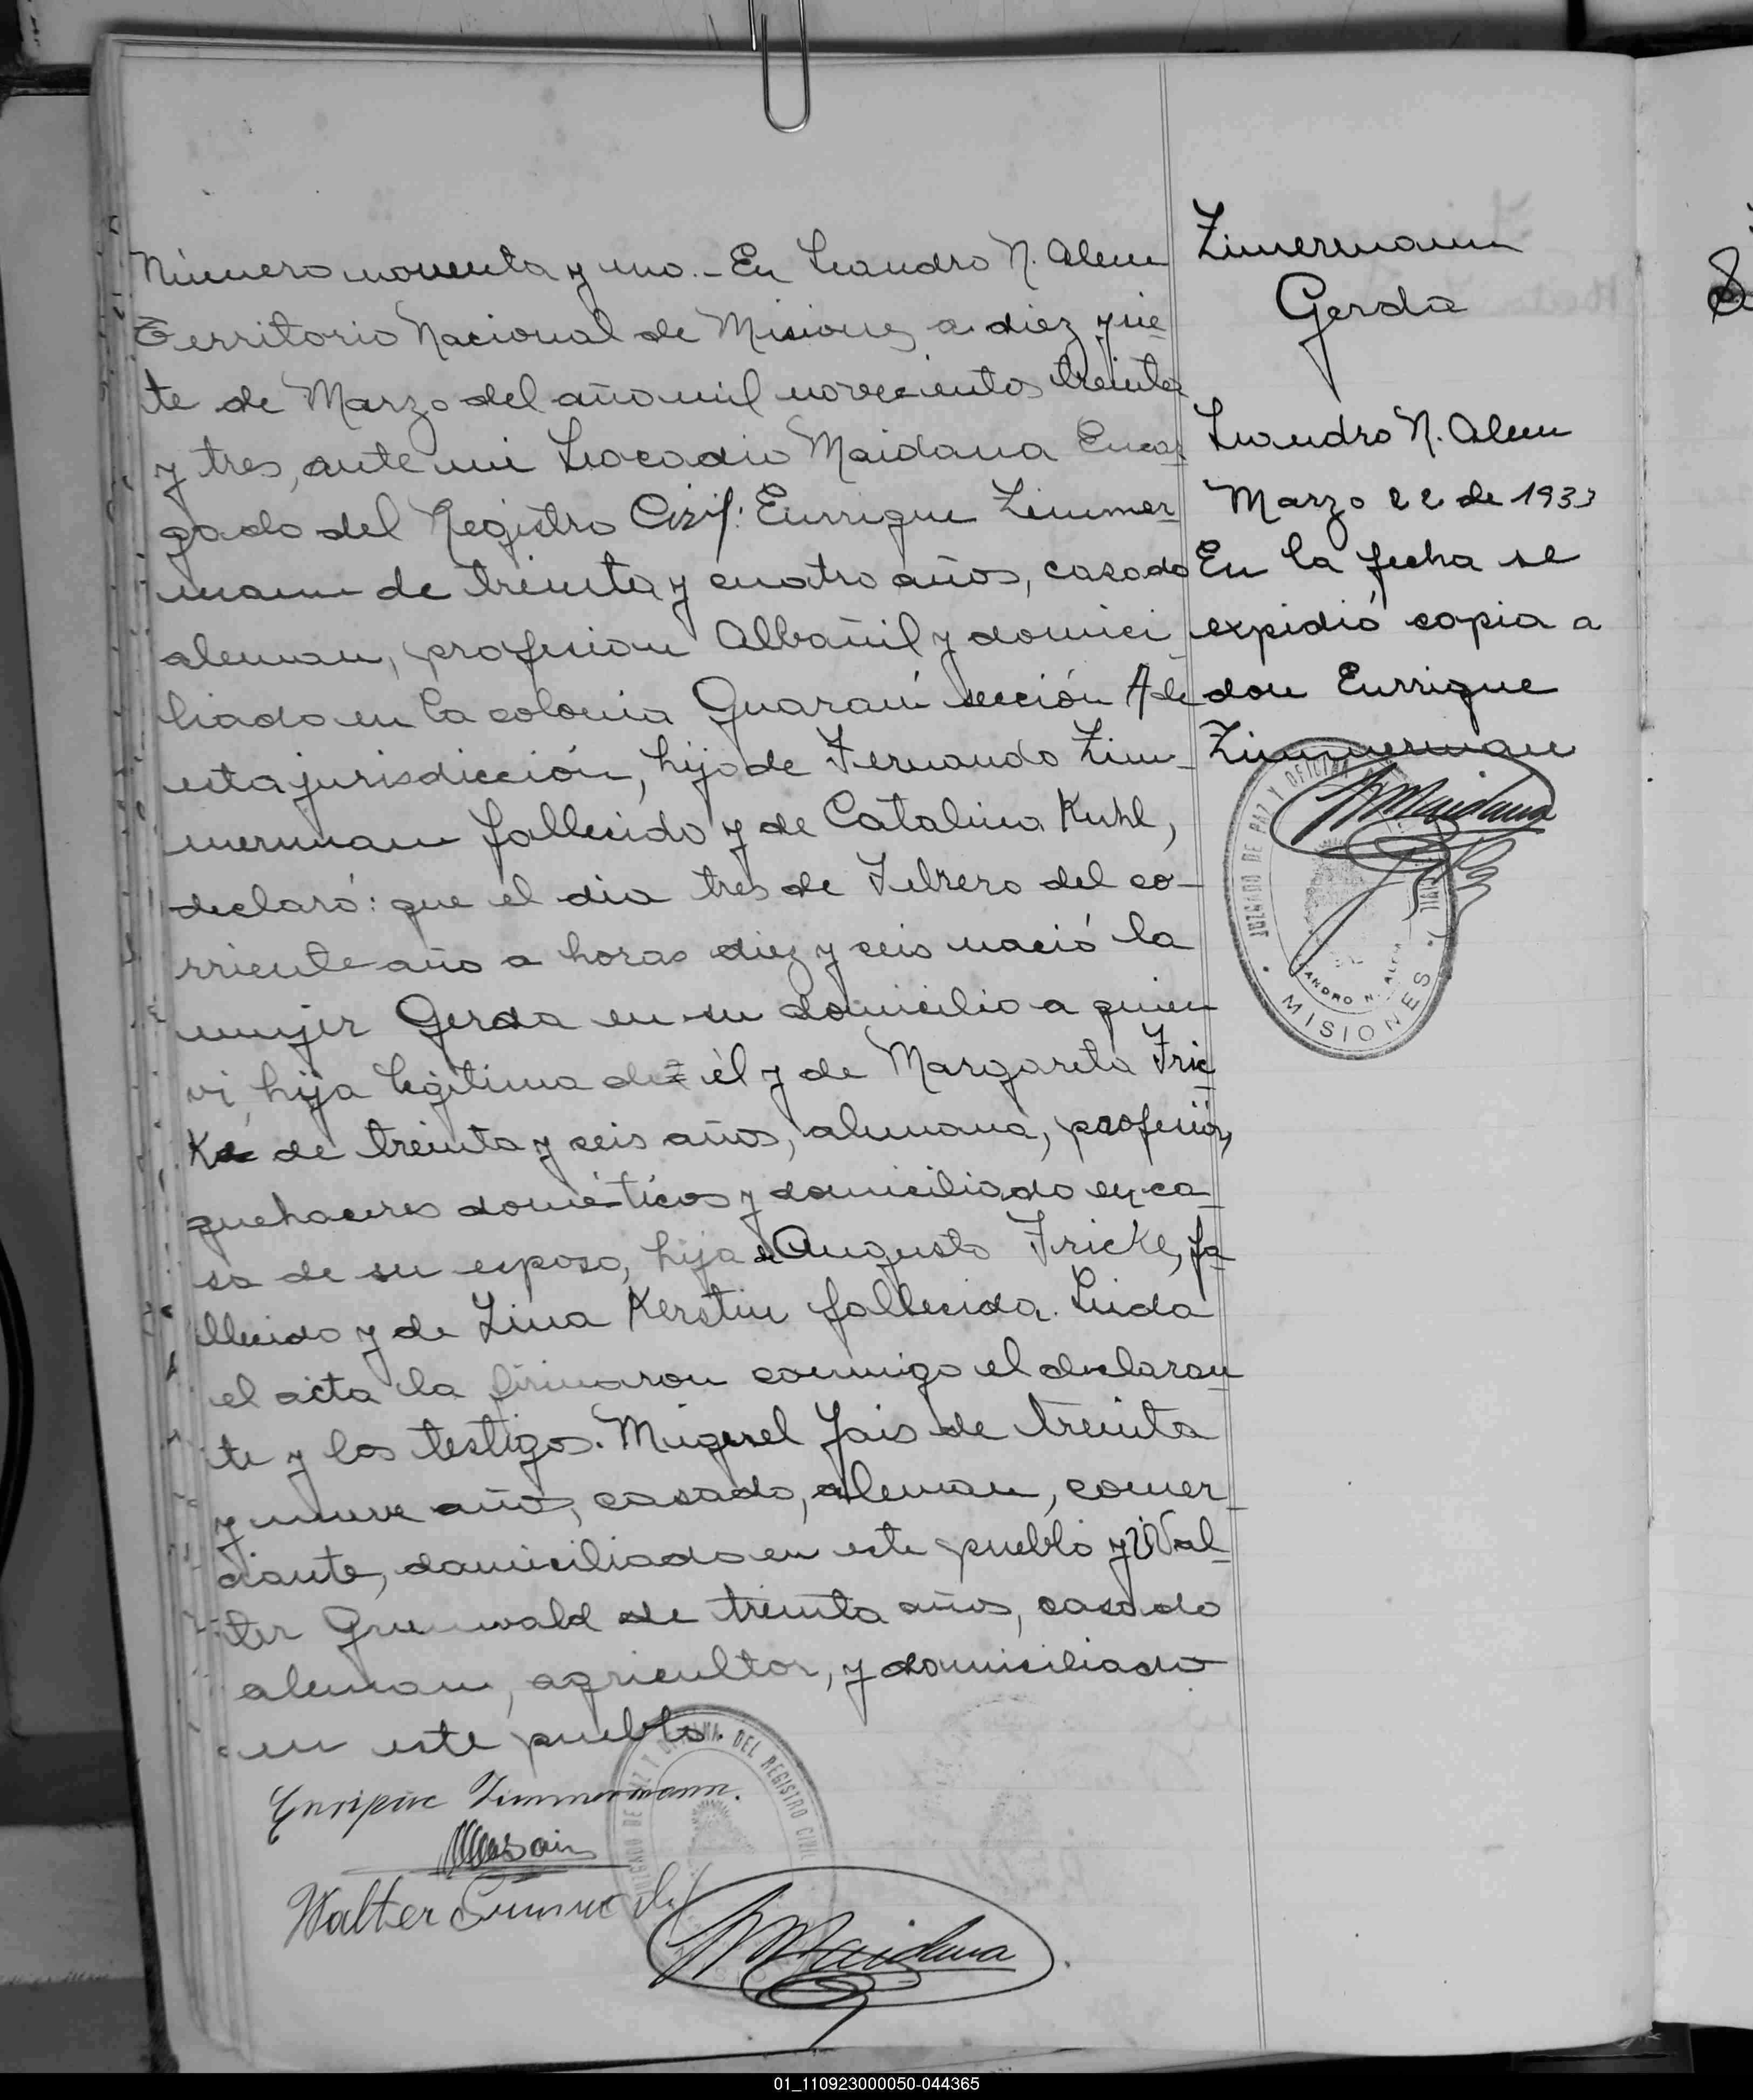 Número noventa y uno.- En Leandro N. Alem
Territorio Nacional de Misiones a diez y sie
te de Marzo del año mil novecientos treinta
y tres, ante mi Leocadio Maidana Encar
gado del Registro Civil: Enrrique Zimmer
mann de treinta y cuatro años, casado
aleman, profesion Albañil y domici
liado en la colonia Guaraní sección A de
esta jurisdicción, hijo de Fernando Zim-
mermann fallecido y de Catalina Kuhl,
declaró: que el dia tres de Febrero del co-
rriente año a horas diez y seis nació la
mujer Gerda en su domicilio a quien
vi, hija legitima de él y de Margareta Fric
ke de treinta y seis años, alemana, profesión,
quehaceres domésticos y domiciliado en ca
sa de su esposo, hija de Augusto Fricke, fa
llecido y de Lina Kerstin fallecida. Leida
el acta la firmaron conmigo el declaran
te y los testigos. Miguel Jais de treinta
y nueve años, casado, aleman, comer
ciante, domiciliado en este pueblo y Wal
ter Grunwald de treinta años, casado
aleman, agricultor, y domiciliado
en este pueblo.
Enrique Zimmermann.
Walter
Maidana
JUZGADO DE PAZ Y OFICINA DEL REGISTRO CIVIL
Zimermann
Gerda
Leandro N. Alem
Marzo 22 de 1933
En la fecha se
expidió copia a
don Enrrique
Zimmermann
Maidana
JUZGADO DE PAZ Y OFICINA
LEANDRO N. ALEM
MISIONES
01_110923000050-044365